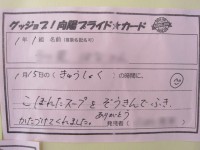 グッジョブ！向陽プライド☆カード
1年1組 名前
1月15日の(きゅうしょく)の時間に、
こぼれたスープをぞうきんでふき、
かたづけてくれました。ありがとう